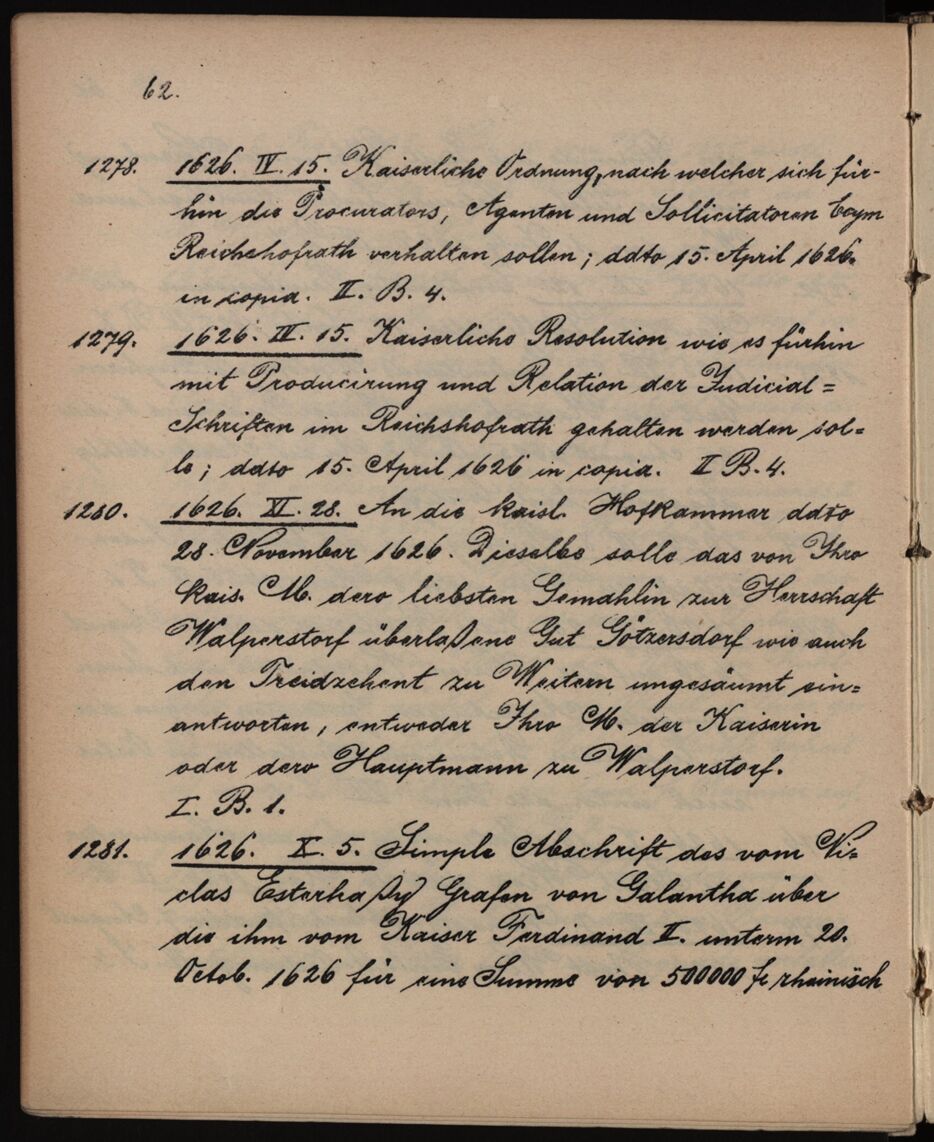 62.
1278. 1626. IV. 15. Kaiserliche Ordnung, nach welcher sich für-
hin die Procurators, Agenten und Sollicitatoren beym
Reichshofrath verhalten sollen; ddto 15. April 1626.
in copia. II. B. 4.
1279. 1626. IV. 15. Kaiserliche Resolution wie es fürhin
mit Producirung und Relation der Judicial=
Schriften im Reichshofrath gehalten werden sol=
le; ddto 15. April 1626 in copia. II B. 4.
1280. 1626. XI. 28. An die kaisl. Hofkammer ddto
28. November 1626. Dieselbe solle das von Ihro
Kais. M. dero liebsten Gemahlin zur Herrschaft
Walperstorf überlaßene Gut Götzersdorf wie auch
den Treidzehent zu Weitern ungesäumt ein=
antworten, entweder Ihro M. der Kaiserin
oder dero Hauptmann zu Walperstorf.
I. B. 1.
1281. 1626. X. 5. Simple Abschrift des vom Ni=
clas Esterhaßy Grafen von Galantha über
die ihm vom Kaiser Ferdinand II. unterm 20.
Octob. 1626 für eine Summe von 500000 fl rheinisch